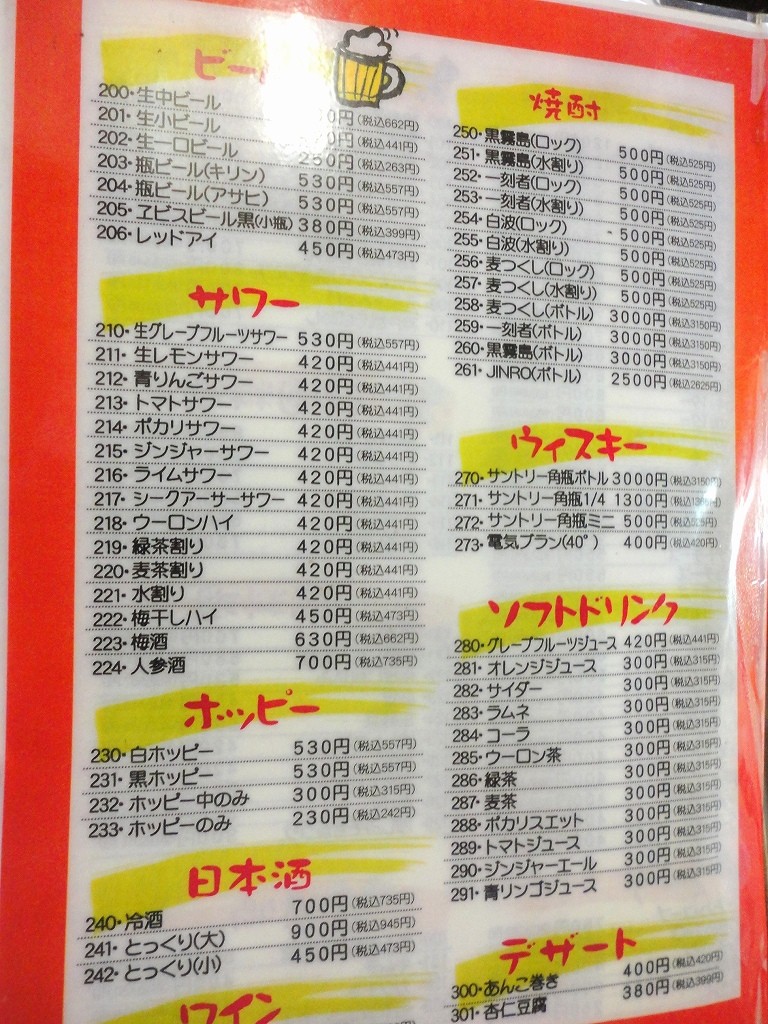 ビー
200・生中ビール (税込662円)
201・生小ビール (税込441円)
202・生一口ビール 250円(税込263円)
203・瓶ビール(キリン) 530円(税込557円)
204・瓶ビール(アサヒ) 530円(税込557円)
205・ヱビスビール黒(小瓶) 380円(税込399円)
206・レッドアイ 450円(税込473円)
サワー
210・生グレープフルーツサワー 530円(税込557円)
211・生レモンサワー 420円(税込441円)
212・青りんごサワー 420円(税込441円)
213・トマトサワー 420円(税込441円)
214・ポカリサワー 420円(税込441円)
215・ジンジャーサワー 420円(税込441円)
216・ライムサワー 420円(税込441円)
217・シークアーサーサワー 420円(税込441円)
218・ウーロンハイ 420円(税込441円)
219・緑茶割り 420円(税込441円)
220・麦茶割り 420円(税込441円)
221・水割り 420円(税込441円)
222・梅干しハイ 450円(税込473円)
223・梅酒 630円(税込662円)
224・人参酒 700円(税込735円)
ホッピー
230・白ホッピー 530円(税込557円)
231・黒ホッピー 530円(税込557円)
232・ホッピー中のみ 300円(税込315円)
233・ホッピーのみ 230円(税込242円)
日本酒
240・冷酒 700円(税込735円)
241・とっくり(大) 900円(税込945円)
242・とっくり(小) 450円(税込473円)
ワイン
焼酎
250・黒霧島(ロック) 500円(税込525円)
251・黒霧島(水割り) 500円(税込525円)
252・一刻者(ロック) 500円(税込525円)
253・一刻者(水割り) 500円(税込525円)
254・白波(ロック) 500円(税込525円)
255・白波(水割り) 500円(税込525円)
256・麦つくし(ロック) 500円(税込525円)
257・麦つくし(水割り) 500円(税込525円)
258・麦つくし(ボトル) 3000円(税込3150円)
259・一刻者(ボトル) 3000円(税込3150円)
260・黒霧島(ボトル) 3000円(税込3150円)
261・JINRO(ボトル) 2500円(税込2625円)
ウィスキー
270・サントリー角瓶ボトル 3000円(税込3150円)
271・サントリー角瓶1/4 1300円
272・サントリー角瓶ミニ 500円(税込525円)
273・電気ブラン(40°) 400円(税込420円)
ソフトドリンク
280・グレープフルーツジュース 420円(税込441円)
281・オレンジジュース 300円(税込315円)
282・サイダー 300円(税込315円)
283・ラムネ 300円(税込315円)
284・コーラ 300円(税込315円)
285・ウーロン茶 300円(税込315円)
286・緑茶 300円(税込315円)
287・麦茶 300円(税込315円)
288・ポカリスエット 300円(税込315円)
289・トマトジュース 300円(税込315円)
290・ジンジャーエール 300円(税込315円)
291・青リンゴジュース 300円(税込315円)
デザート
300・あんこ巻き 400円(税込420円)
301・杏仁豆腐 380円(税込399円)